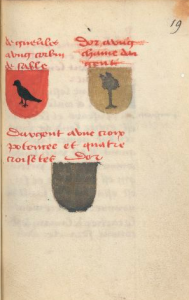 19
de gueules
a ung corbin
de sable
Dor a ung
chaine dar
gent
Dargent a une croix
potencee et quatre
croisetes dor